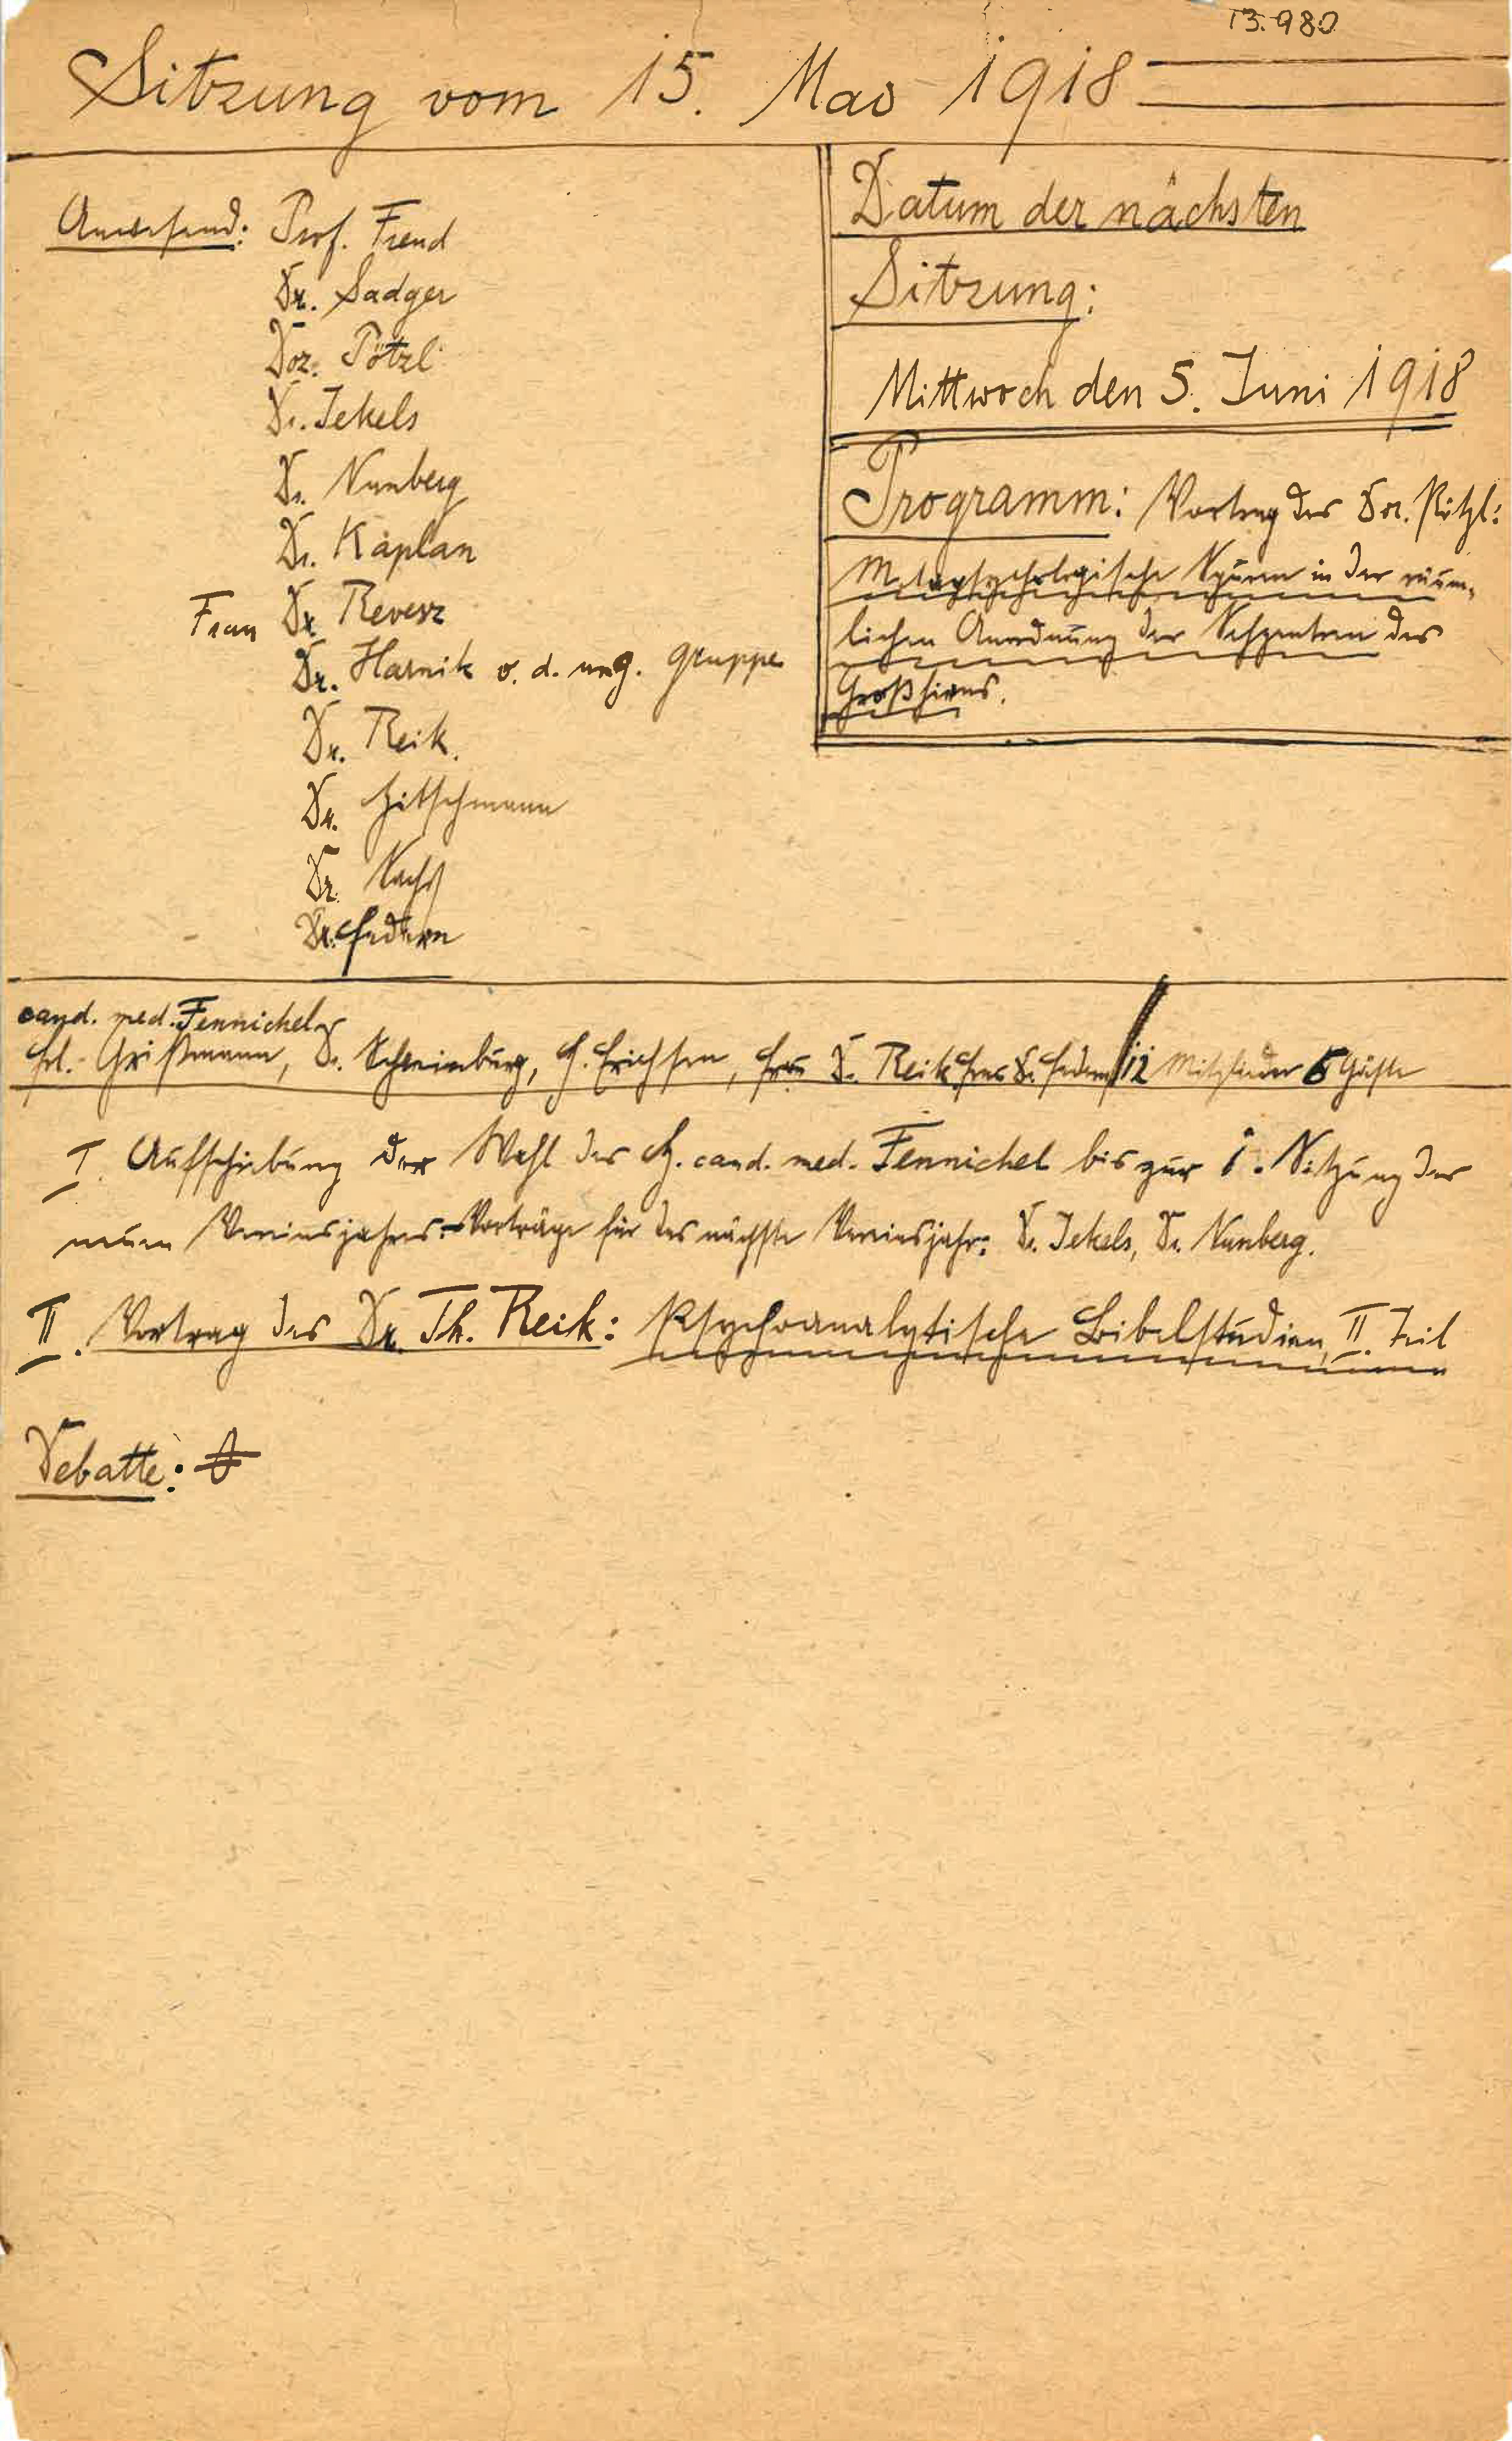 13.980
Sitzung vom 15. Mai 1918
Anwesend: Prof. Freud
Dr. Sadger
Doz. Pötzl
Dr. Jekels
Dr. Nunberg
Dr. Kaplan
Frau Dr. Revesz
Dr. Harnik v. d. ung. Gruppe
Dr. Reik.
Dr. Hitschmann
Dr. Sachs
Dr. Federn
Datum der nächsten
Sitzung:
Mittwoch den 5. Juni 1918
Programm: Vortrag des Doz. Pötzl:
Metapsychologische Spuren in der räum-
lichen Anordnung der Sehzentren des
Großhirns.
cand. med. Fennichel
Frl. Grißmann, Dr. Schneinburg, H. Erichsen, Frau Dr. Reik Frau Dr. Federn / 12 Mitglieder 6 Gäste
I. Aufschiebung der Wahl des H. cand. med. Fennichel bis zur 1. Sitzung des
neuen Vereinsjahres. – Vorträge für das nächste Vereinsjahr: Dr. Jekels, Dr. Nunberg.
II. Vortrag des Dr. Th. Reik: Psychoanalytische Bibelstudien, II. Teil
Debatte: